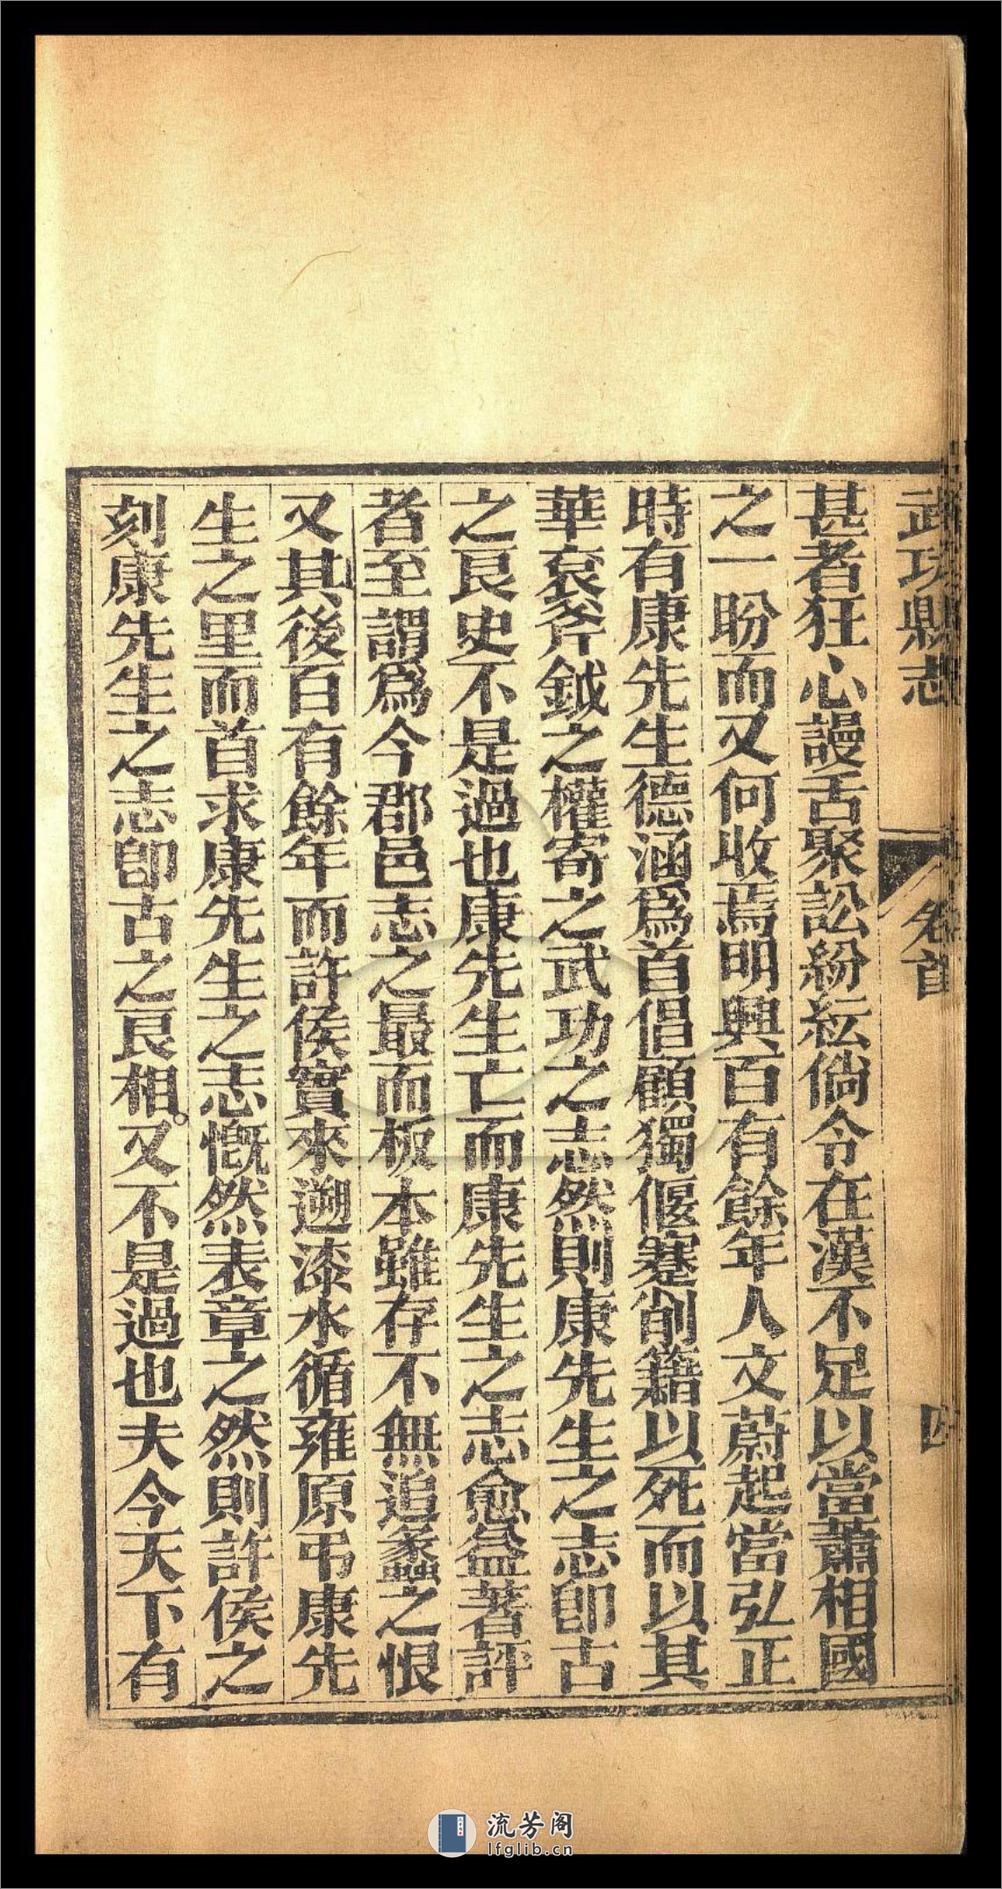 武功縣志
卷首
四
甚者狂心謾舌聚訟紛紜倘令在漢不足以當蕭相國
之一盼而又何收焉明興百有餘年人文蔚起當弘正
時有康先生德涵爲首倡顧獨偃蹇削籍以死而以其
華袞斧鉞之權寄之武功之志然則康先生之志卽古
之良史不是過也康先生亡而康先生之志愈益著評
者至謂爲今郡邑志之最而板本雖存不無追蠡之恨
又其後百有餘年而許侯實來遡漆水循雍原弔康先
生之里而首求康先生之志慨然表章之然則許侯之
刻康先生之志卽古之良相。又不是過也夫今天下有
流芳阁
lfglib.cn